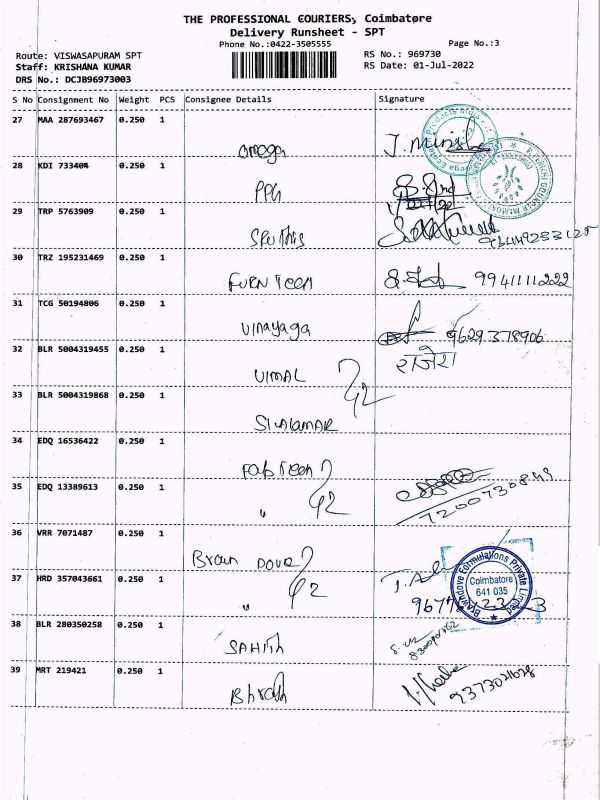 THE PROFESSIONAL COURIERS, Coimbatore
Delivery Runsheet - SPT
Phone No.:0422-3505555
Page No.:3
Route: VISWASAPURAM SPT
RS No.: 969730
Staff: KRISHANA KUMAR
RS Date: 01-Jul-2022
DRS No.: DCJB96973003
S No Consignment No Weight PCS Consignee Details Signature
27 MAA 287693467 0.250 1
omega
28 KDI 733404 0.250 1
PPG
29 TRP 5763909 0.250 1
30 TRZ 195231469 0.250 1
FURN TECH 9941111222
31 TCG 50194806 0.250 1
Vinayaga 9629378906
राजेश
32 BLR 5004319455 0.250 1
VIMAL
33 BLR 5004319868 0.250 1
SIVALAMAR
34 EDQ 16536422 0.250 1
Fab Tech
35 EDQ 13389613 0.250 1
" 7200730849
36 VRR 7071487 0.250 1
Brawn Dove
37 HRD 357043661 0.250 1
"
Brawndove Formulations Private Limited
Coimbatore
641 035
38 BLR 280350258 0.250 1
SAHITH
39 MRT 219421 0.250 1
Bhrath